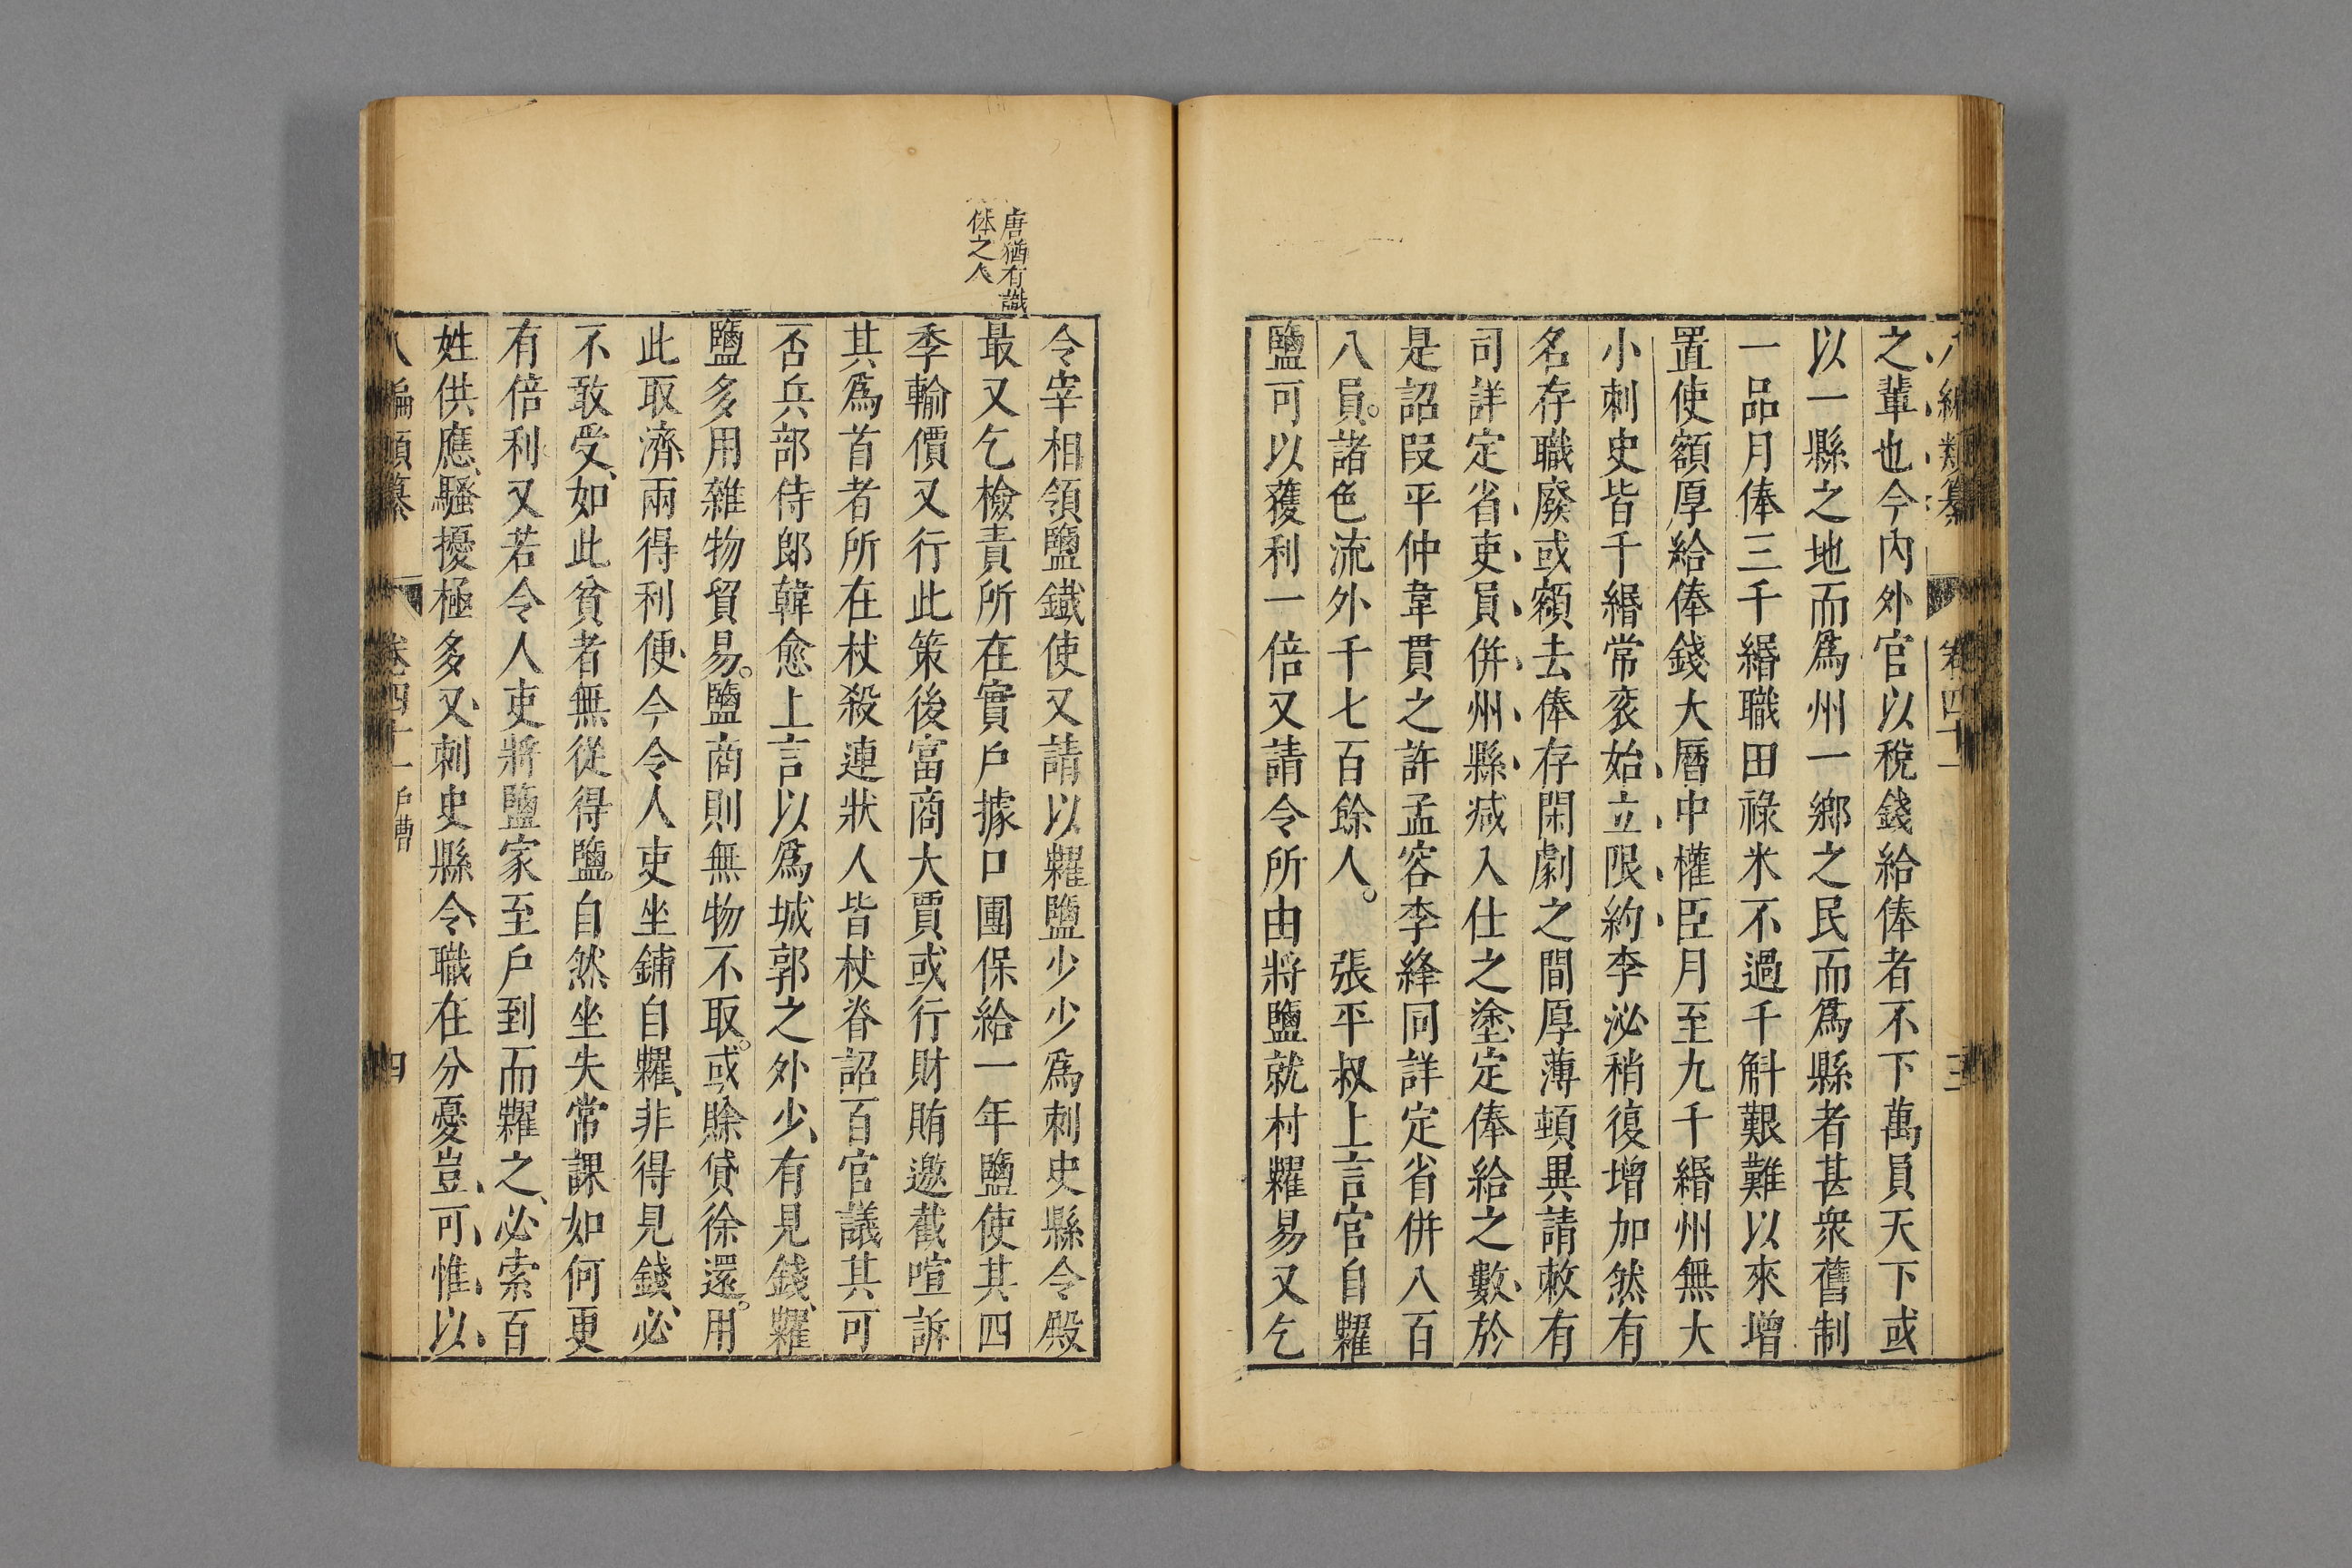 八編類纂 卷四十一 三
之輩也今內外官以稅錢給俸者不下萬員天下或
以一縣之地而爲州一鄉之民而爲縣者甚衆舊制
一品月俸三千緡職田祿米不過千斛艱難以來增
置使額厚給俸錢大曆中權臣月至九千緡州無大
小刺史皆千緡常袞始立限約李泌稍復增加然有
名存職廢或額去俸存閑劇之間厚薄頓異請敕有
司詳定省吏員併州縣减入仕之塗定俸給之數於
是詔段平仲韋貫之許孟容李絳同詳定省併八百
八員。諸色流外千七百餘人。 張平叔上言官自糶
鹽可以獲利一倍又請令所由將鹽就村糶易又乞
唐猶有識
体之人
令宰相領鹽鐵使又請以糶鹽少少爲刺史縣令殿
最又乞檢責所在實戶據口團保給一年鹽使其四
季輸價又行此策後富商大賈或行財賄邀截喧訴
其爲首者所在杖殺連狀人皆杖脊詔百官議其可
否兵部侍郞韓愈上言以爲城郭之外少、有見錢、糶
鹽多用雜物貿易。鹽商則無物不取。或賖貸徐還。用
此取濟兩得利便、今令人吏坐鋪自糶、非得見錢、必
不敢受、如此、貧者無從得鹽。自然坐失常課如何更
有倍利又若令人吏將鹽家至戶到而糶之、必索百
姓供應、騷擾極多、又刺史縣令職在分憂豈、可、惟、以、
八編類纂 卷四十一 戶曹 四